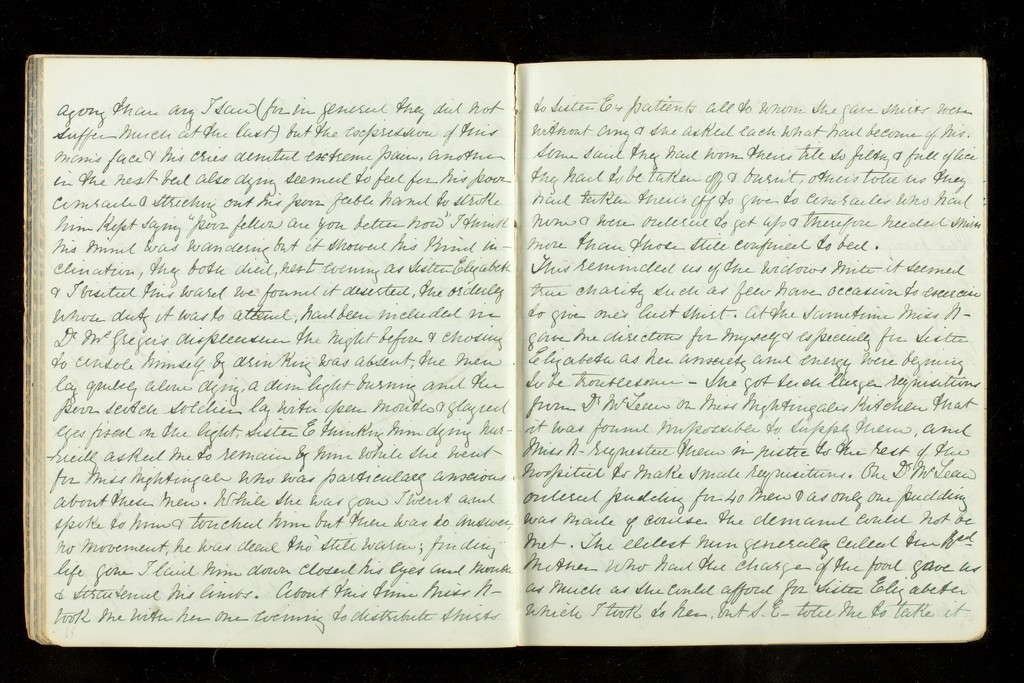 agony than any I saw (for in general they did not
suffer much at the last) but the expression of this
man's face & his cries denoted extreme pain, another
in the next bed also dying seemed to feel for his poor
comrade & streching out his poor feeble hand to stroke
him kept saying "poor fellow are you better now" I think
his mind was wandering but it showed his kind in-
clination, they both died, next evening as Sister Elizabeth
& I visited this ward we found it deserted, the orderly
whose duty it was to attend, had been included in
Dr McGregor's displeasure the night before & choosing
to console himself by drinking was absent, the men
lay quietly alone dying, a dim light burning and the
poor scotch soldier lay with open mouth & glazed
eyes fixed on the light, Sister E thinking him dying hur-
riedly asked me to remain by him while she went
for Miss Nightingale who was particularly anxious
about these men. While she was gone I went and
spoke to him & touched him but there was no answer,
no movement, he was dead tho' still warm; finding
life gone I laid him down closed his eyes and mouth
& straitened his limbs. About this time Miss N-
took me with her one evening to distribute shirts
to Sister E's patients all to whom she gave shirts were
without any & she asked each what had become of his.
Some said they had worn theirs till so filthy & full of lice
they had to be taken off & burnt, others told us they
had taken theirs off to give to comrades who had
none & were ordered to get up & therefore needed shirts
more than those still confined to bed.
This reminded us of the widows mite it seemed
true charity such as few have occasion to exercise
to give one's last shirt. At the same time Miss N-
gave me directions for myself & especially for Sister
Elizabeth as her anxiety and energy were begining
to be troublesome - She got such large requisitions
from Dr McLean on Miss Nightingales Kitchen that
it was found impossible to supply them, and
Miss N- requested them in justice to the rest of the
hospital to make small requisitions. One Dr McLean
ordered pudding for 40 men & as only one pudding
was made of course the demand could not be
met. The eldest nun generally called the Revd
Mother who had the charge of the food gave us
as much as she could afford for Sister Elizabeth
which I took to her, but S. E- told me to take it